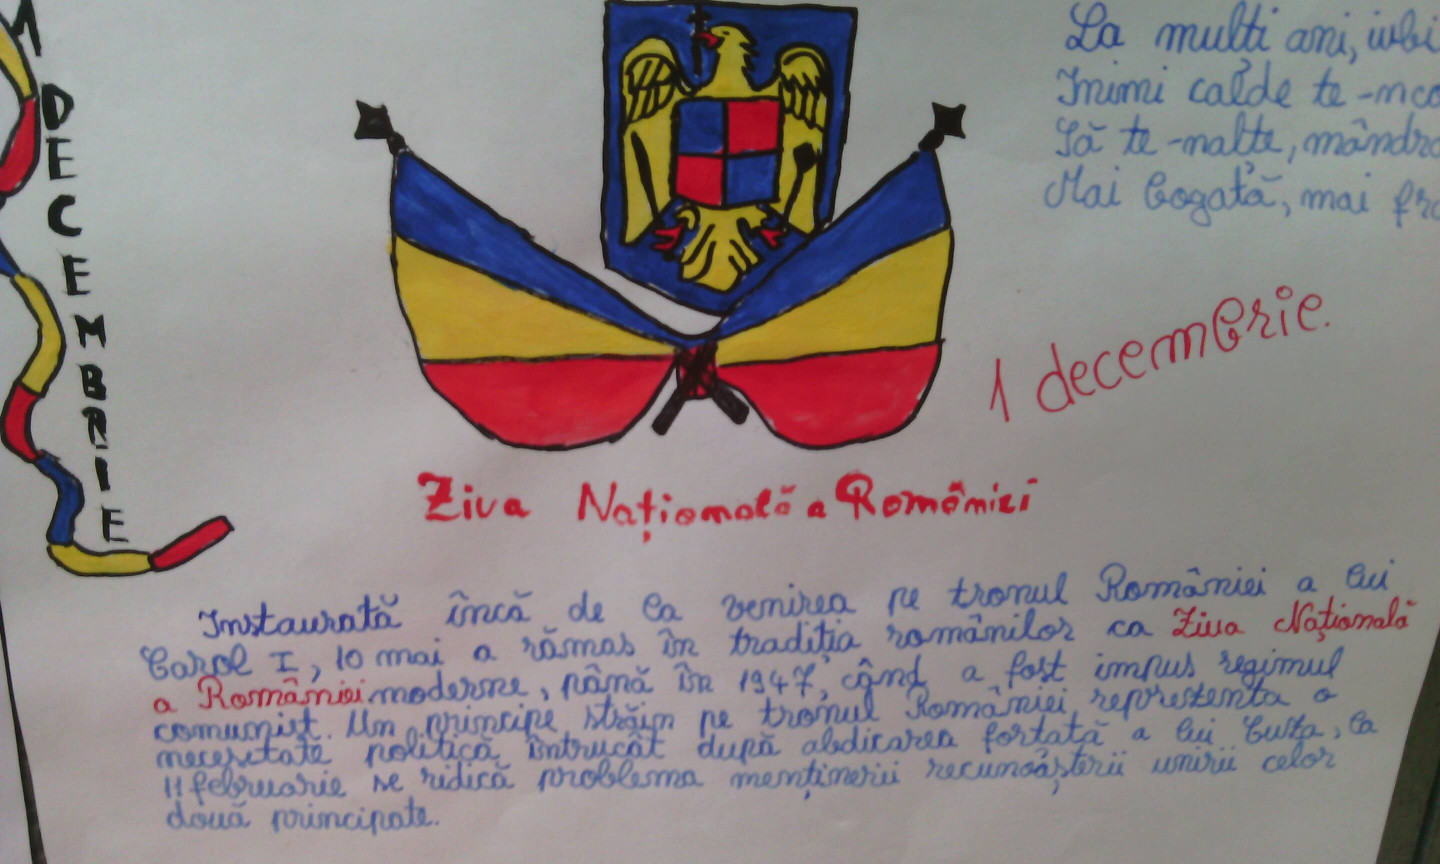 M DECEMBRIE
La multi ani, iubi
Inimi calde te-nco
Să te-nalțe, mândră
Mai bogată, mai fru
1 decembrie.
Ziva Națională a României
Instaurată încă de la venirea pe tronul României a lui
Carol I, 10 mai a rămas în tradiția românilor ca Ziua Națională
a României moderne, până în 1947, când a fost impus regimul
comunist. Un principe străin pe tronul României reprezenta o
necesitate politică, întrucât după abdicarea forțată a lui Cuza, la
11 februarie se ridică problema menținerii recunoașterii unirii celor
două principate.